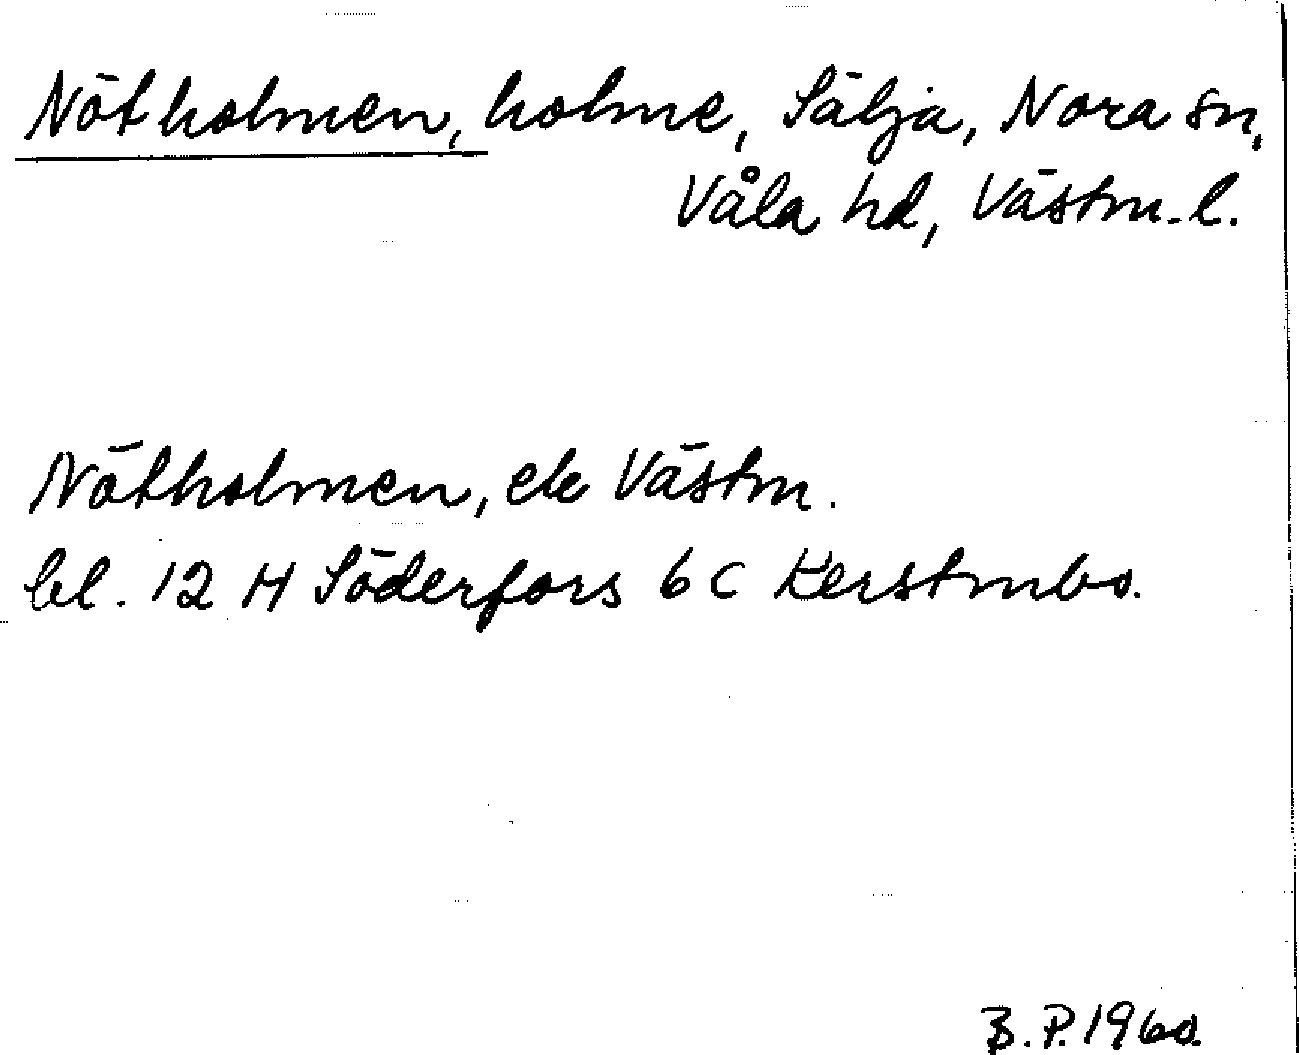 Nötholmen, holme, Sälja, Nora sn,
Våla hd, Västm. l.
Nötholmen, ek Västm.
bl. 12 H Söderfors 6 c Kerstinbo.
B.P. 1960.